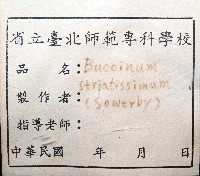 省立臺北師範專科學校
品名: Buccinum
製作者: striatissimum
(Sowerby)
指導老師:
中華民國 年 月 日